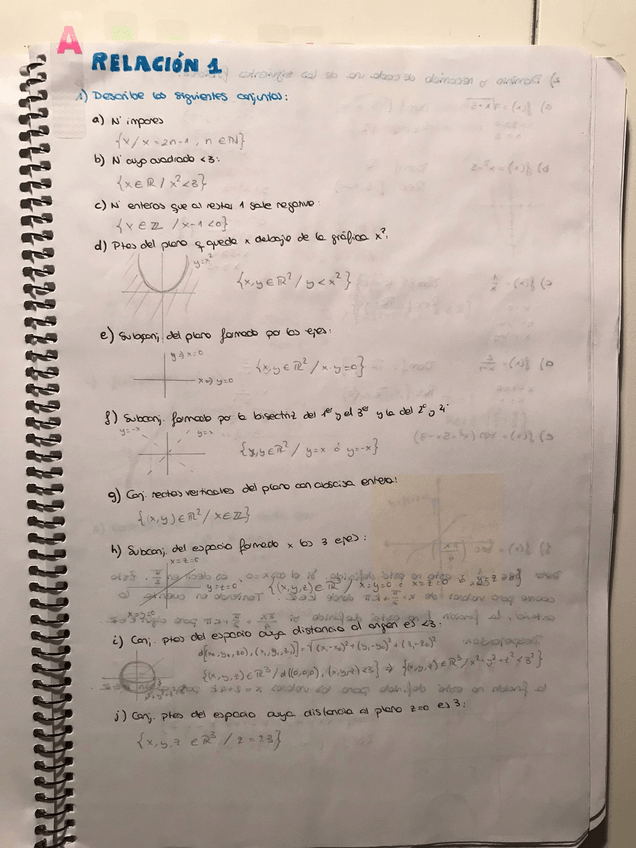 A
RELACIÓN 1
1) Describe los siguientes conjuntos:
a) Nº impares
{x/x=2n-1, n∈ℕ}
b) Nº cuyo cuadrado <3:
{x∈ℝ/x²<3}
c) Nº enteros que al restar 1 sale negativo:
{x∈ℤ /x-1<0}
d) Ptos del plano q queda x debajo de la gráfica x²:
y=x²
{x,y∈ℝ²/y<x²}
e) Subconj. del plano formado por los ejes:
y⇒x=0
x⇒y=0
{x,y∈ℝ²/x·y=0}
f) Subconj. formado por la bisectriz del 1er y el 3er y la del 2º y 4º
y=-x
y=x
{x,y∈ℝ²/y=x ó y=-x}
g) Conj. rectas verticales del plano con abscisa entera:
{(x,y)∈ℝ²/x∈ℤ}
h) Subconj. del espacio formado x los 3 ejes:
x=z=0
y=z=0
x=y=0
{(x,y,z)∈ℝ³/x=y=0 ó x=z=0 ó
i) Conj. ptos del espacio cuya distancia al origen es <3.
{(x,y,z)∈ℝ³/d((0,0,0),(x,y,z))<3} ⇒
j) Conj. ptos del espacio cuya distancia al plano z=0 es 3:
{x,y,z ∈ℝ³ / z=±3}